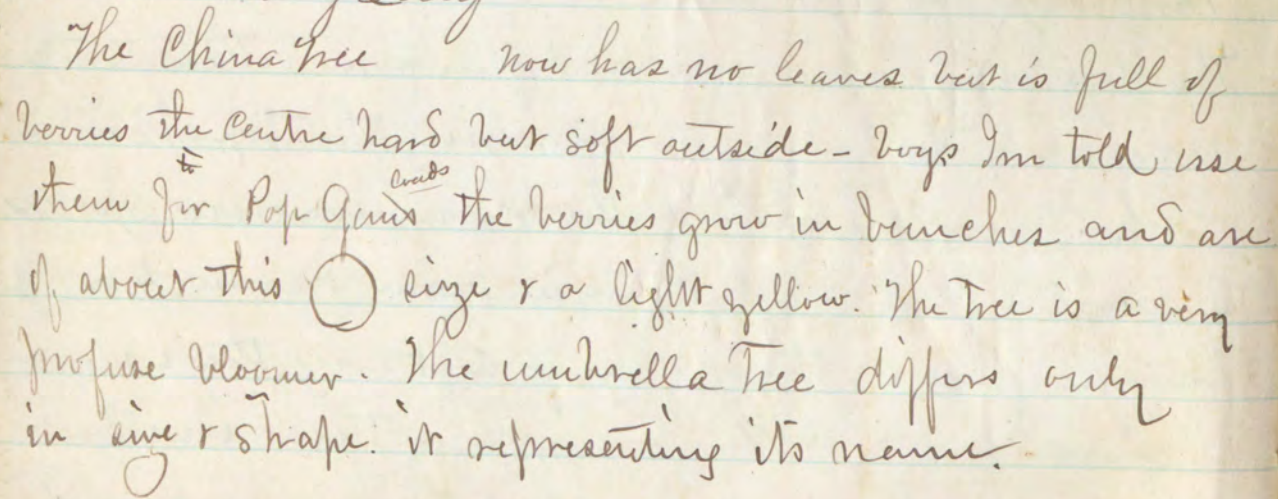 The China Tree now has no leaves but is full of
berries the centre hard but soft outside - boys Im told use
them for Pop Guns the berries grow in bunches and are
of about this size & a light yellow. The Tree is a very
profuse bloomer. The umbrella Tree differs only
in size & shape. it representing its name.